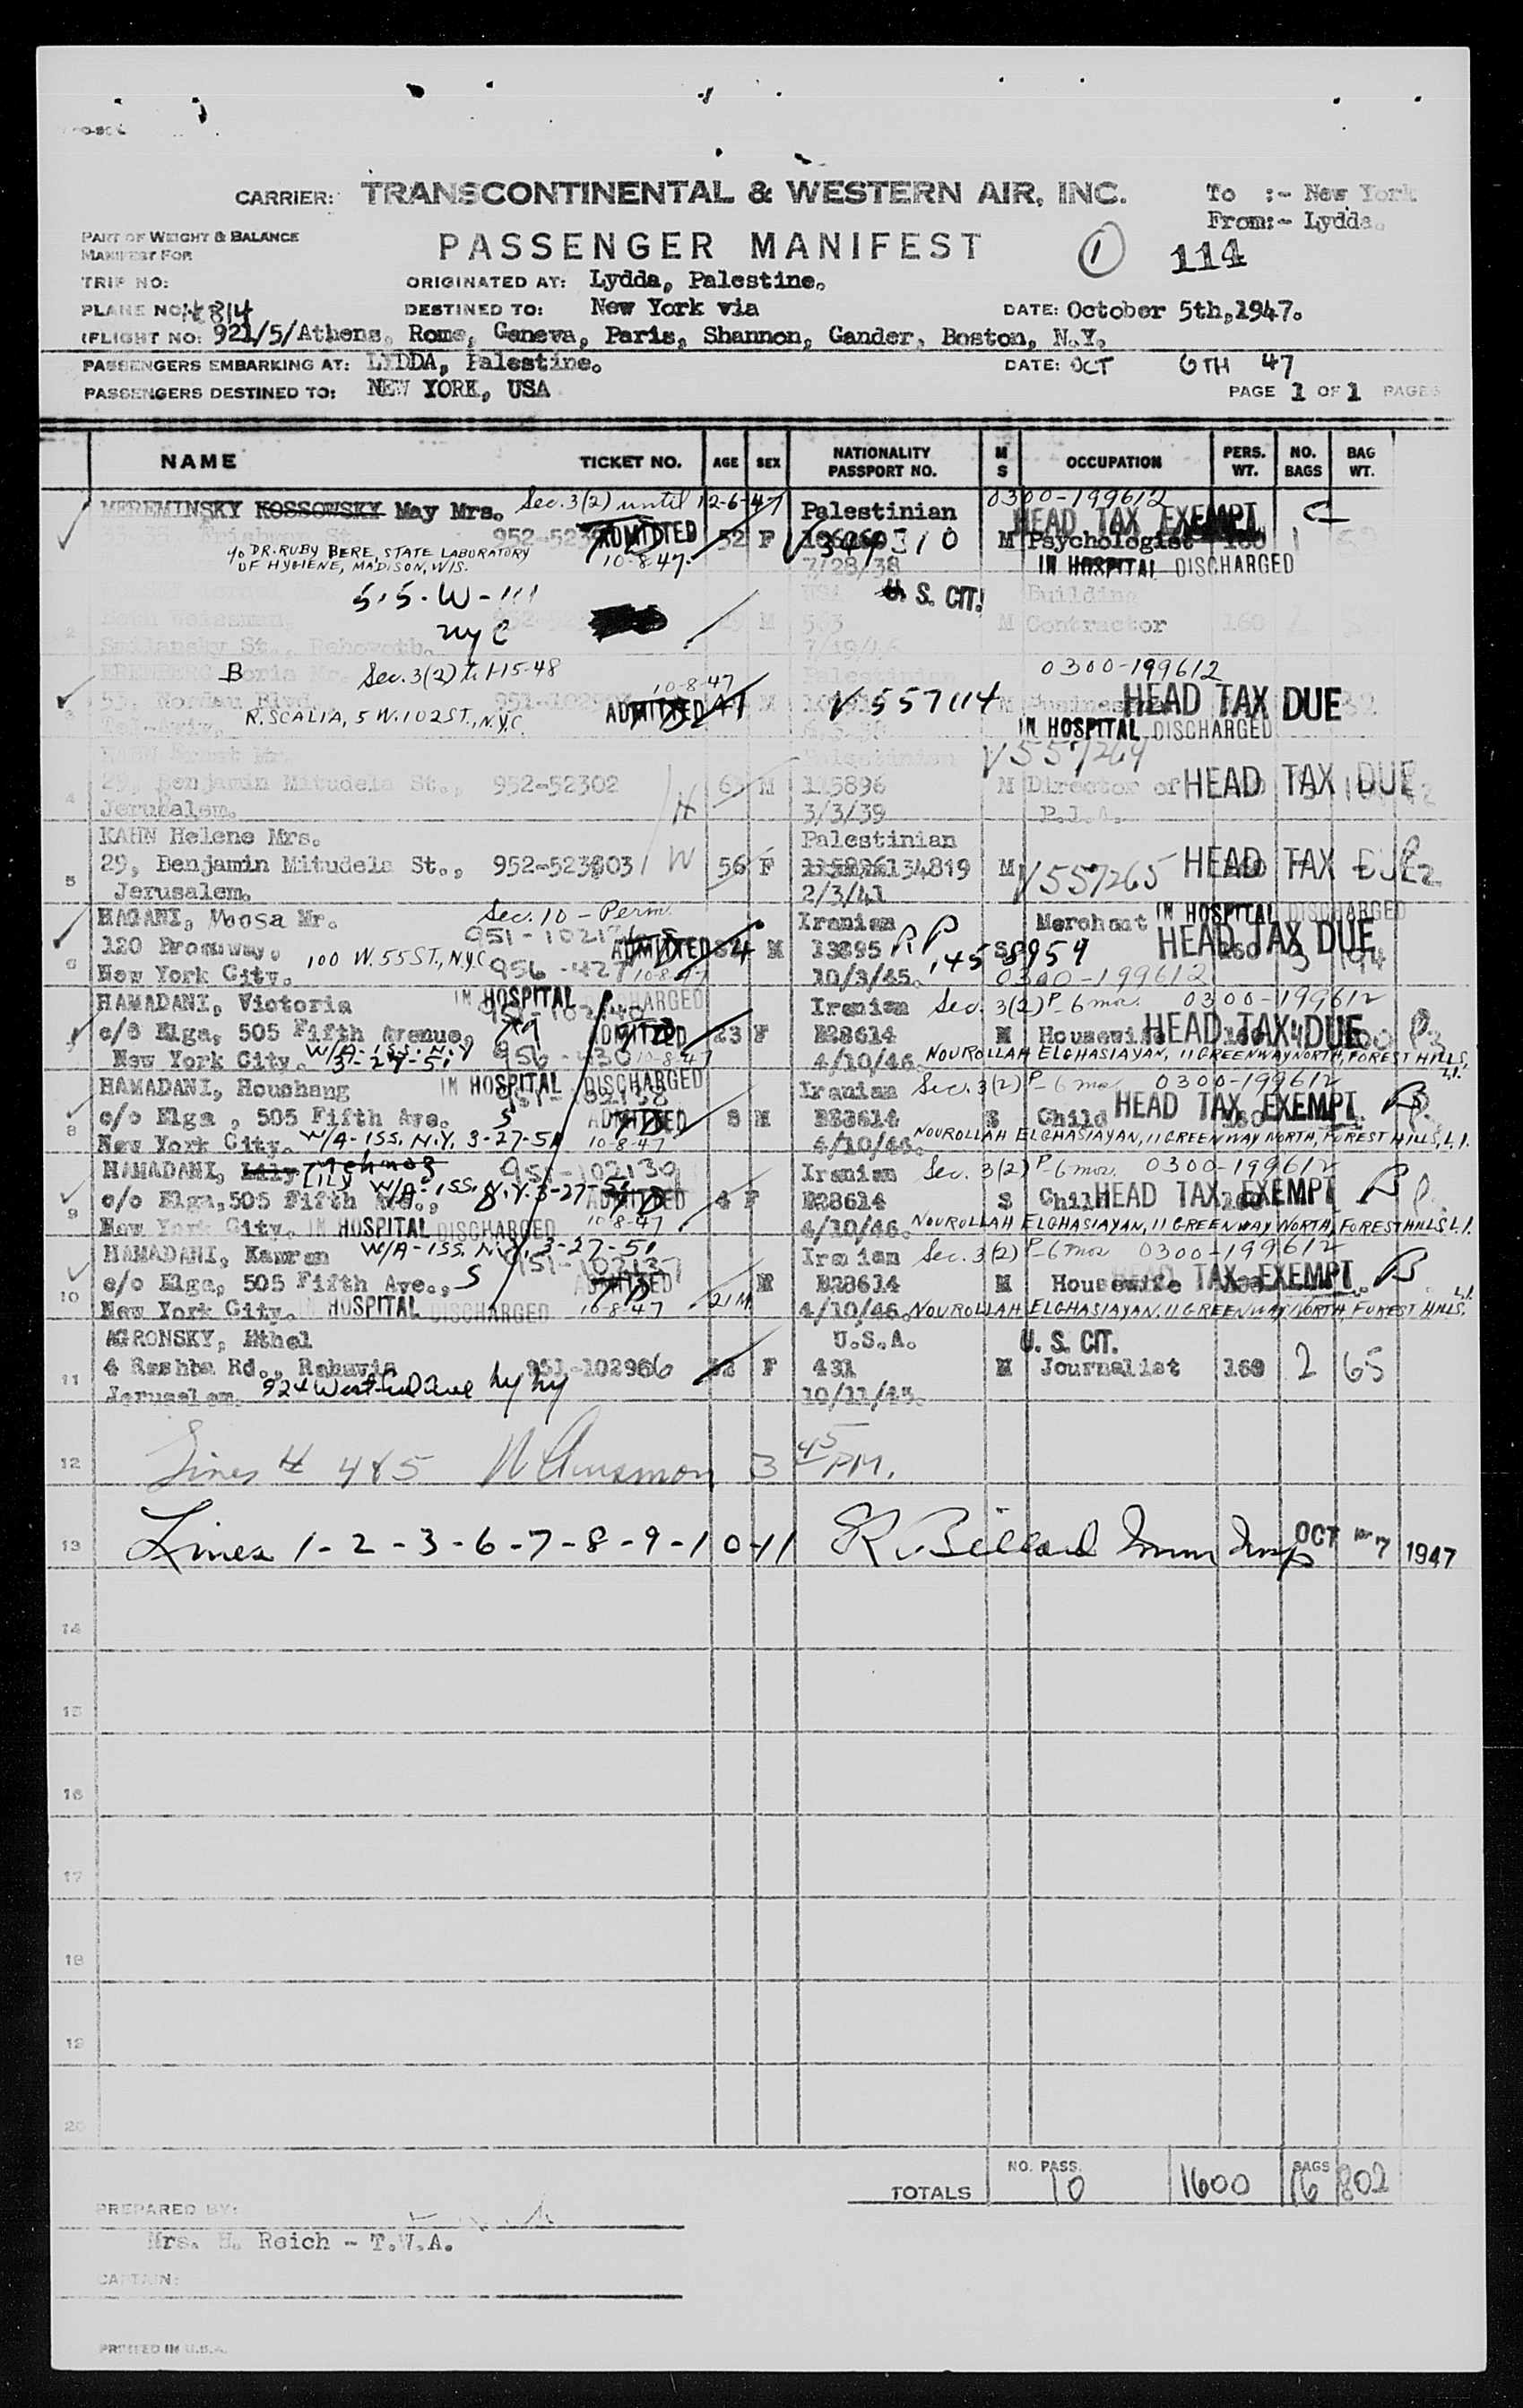 CARRIER: TRANSCONTINENTAL & WESTERN AIR, INC.
To :- New York
From:- Lydda.
PART OF WEIGHT & BALANCE
MANIFEST FOR
PASSENGER MANIFEST
1
114
TRIP NO:
ORIGINATED AT: Lydda, Palestine.
PLANE NO:
DESTINED TO: New York via
DATE: October 5th,1947.
FLIGHT NO: 921/5/Athens, Rome, Geneva, Paris, Shannon, Gander, Boston, N.Y.
PASSENGERS EMBARKING AT: LYDDA, Palestine.
DATE: OCT 6TH 47
PASSENGERS DESTINED TO: NEW YORK, USA
PAGE 1 OF 1 PAGES
NAME TICKET NO. AGE SEX NATIONALITY PASSPORT NO. M S OCCUPATION PERS. WT. NO. BAGS BAG WT.
MEREMINSKY KOSSOWSKY May Mrs. Sec. 3(2) until 12-6-47 Palestinian 0300-199612
HEAD TAX EXEMPT
ADMITTED 52 F M Psychologist
10-8-47 7/28/38 IN HOSPITAL DISCHARGED
c/o DR. RUBY BERE, STATE LABORATORY
OF HYGIENE, MADISON, WIS.
515-W-111
NYC
U.S. CIT.
USA Building
2 M 503 M Contractor 160
Smilansky St., Rehovoth.
Boris Mr. Sec. 3(2) to 1-15-48 Palestinian 0300-199612
3 10-8-47 ADMITTED M V557114 HEAD TAX DUE
R. SCALIA, 5 W. 102 ST., N.Y.C. IN HOSPITAL DISCHARGED
V557264
4 29, Benjamin Mitudela St., 952-52302 M 115896 M Director of HEAD TAX DUE
Jerusalem. 3/3/39 P.I.A.
KAHN Helene Mrs. Palestinian
5 29, Benjamin Mitudela St., W 56 F 134819 M V557265 HEAD TAX DUE
Jerusalem. 2/3/41
HAGANI, Moosa Mr. Sec. 10 - Perm. Iranian Merchant IN HOSPITAL DISCHARGED
6 120 Broadway. ADMITTED M 13895 RP 1458959 S HEAD TAX DUE
New York City. 100 W. 55 ST., N.Y.C. 10-8-47 10/3/45. 0300-199612
HAMADANI, Victoria IN HOSPITAL DISCHARGED Iranian Sec. 3(2) P-6 mos. 0300-199612
7 c/o Elga, 505 Fifth Avenue, ADMITTED 23 F E28614 M Housewife HEAD TAX DUE
New York City. W/A-ISS. N.Y. 3-27-51 10-8-47 4/10/46. NOUROLLAH ELGHASIAYAN, 11 GREENWAY NORTH, FOREST HILLS, L.I.
HAMADANI, Houshang IN HOSPITAL DISCHARGED Iranian Sec. 3(2) P-6 mos 0300-199612
8 c/o Elga, 505 Fifth Ave. S ADMITTED 8 M E28614 S Child HEAD TAX EXEMPT
New York City. W/A-ISS. N.Y. 3-27-51 10-8-47 4/10/46. NOUROLLAH ELGHASIAYAN, 11 GREENWAY NORTH, FOREST HILLS, L.I.
HAMADANI, Lily 951-102139 Iranian Sec. 3(2) P-6 mos. 0300-199612
9 c/o Elga, 505 Fifth Ave., W/A-ISS. N.Y. 3-27-51 ADMITTED 4 F E28614 S Child HEAD TAX EXEMPT
New York City. IN HOSPITAL DISCHARGED 10-8-47 4/10/46. NOUROLLAH ELGHASIAYAN, 11 GREENWAY NORTH, FOREST HILLS L.I.
HAMADANI, Kamran W/A-ISS. N.Y. 3-27-51 951-102137 Iranian Sec. 3(2) P-6 mos 0300-199612
10 c/o Elga, 505 Fifth Ave., S ADMITTED M E28614 M Housewife HEAD TAX EXEMPT
New York City. IN HOSPITAL DISCHARGED 10-8-47 21M 4/10/46. NOUROLLAH ELGHASIAYAN, 11 GREENWAY NORTH, FOREST HILLS, L.I.
AGRONSKY, Ethel U.S.A. U. S. CIT.
11 4 Rashba Rd., Rehavia 951-102966 F 431 M Journalist 160 2 65
Jerusalem. 924 West End Ave NY NY 10/11/45.
12 Lines # 4&5 3 45 PM.
13 Lines 1-2-3-6-7-8-9-10-11 Imm Insp OCT 7 1947
14
15
16
17
18
19
20
TOTALS NO. PASS. 10 1600 BAGS 16 802
PREPARED BY:
Mrs. H. Reich - T.W.A.
CAPTAIN:
PRINTED IN U.S.A.